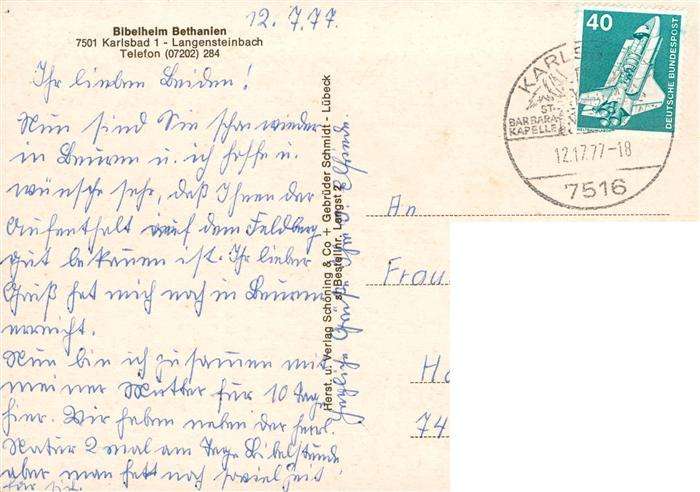 12.7.77.
Bibelheim Bethanien
7501 Karlsbad 1 - Langensteinbach
Telefon (07202) 284
Ihr lieben Beiden!
Nun sind Sie schon wieder
in Beuren u. ich hoffe u.
wünsche sehr, daß Ihnen der
Aufenthalt auf dem Feldberg
gut bekommen ist. Ihr lieber
Gruß hat mich noch in Beuren
erreicht.
Nun bin ich zusammen mit
meiner Mutter für 10 Tage
hier. Wir haben neben der herrl.
Natur 2 mal am Tage Bibelstunde
aber man hat noch soviel Zeit
für sich.
Herzliche Grüße Ihre
Herst. u. Verlag Schöning & Co + Gebrüder Schmidt - Lübeck
Bestellnr. Langst 2
40
DEUTSCHE BUNDESPOST
KARLSBAD
ST.
BARBARA
KAPELLE
12.17.77-18
7516
An
Frau
74